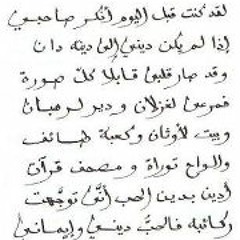 لقد كنت قبل اليوم أنكر صاحبي
إذا لم يكن ديني إلى دينه دان
وقد صار قلبي قابلاً كل صورة
فمرعى لغزلان ودير لرهبان
وبيت لأوثان وكعبة طائف
وألواح توراة ومصحف قرآن
أدين بدين الحب أنّى توجّهت
ركائبه فالحبّ ديني وإيماني